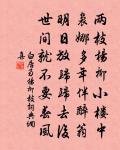 兩枝楊柳小樓中
裊娜多年伴醉翁
明日放歸歸去後
世間就不要春風
白居易楊柳枝詞典網